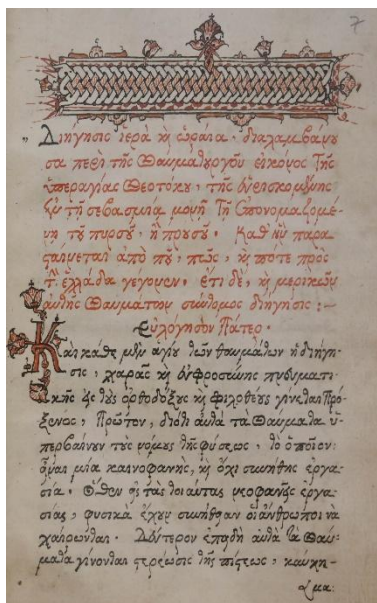 7
Διήγησις ἱερὰ κ̀ ὡραία· διαλαμβάνου
σα περὶ τῆς θαυματουργοῦ εἰκόνος τῆς
ὑπεραγίας Θεοτόκου, τῆς εὑρισκομένης
ἐν τῇ σεβασμίᾳ μονῇ τῇ ἐπονομαζομέ-
νῃ τοῦ πυρσοῦ, ἢ προυσοῦ. Καθ' ἣν παρα
ἀπὸ ποῦ, πῶς, κ̀ ποτε πρὸς
τ̀ ἑλλάδα γέγονεν. ἔτι δὲ, κ̀ μερικῶν
αὐτῆς θαυμάτων σύντομος διήγησις:—
Εὐλόγησον Πάτερ.
Καὶ κάθε μὲν ἁγίου τῶν θαυμάτων ἡ διήγη-
σις, χαρᾶς κ̀ εὐφροσύνης πνευματι-
κῆς εἰς τοὺς ὀρθοδόξους κ̀ φιλοθέους γίνεται πρό-
ξενος, Πρῶτον, διότι αὐτὰ τὰ θαύματα ὑ-
περβαίνουν τοὺς νόμους τῆς φύσεως, τὸ ὁποῖον
εἶναι μία καινοφανὴς, κ̀ ὄχι συνήθης ἐργα-
σία. Ὅθεν εἰς τὰς τοιαύτας νεοφανεῖς ἐργα-
σίας, φυσικὰ ἔχουν συνήθειαν οἱ ἄνθρωποι νὰ
χαίρωνται. Δεύτερον ἐπειδὴ αὐτὰ τὰ θαύ-
ματα γίνονται στερέωσις τῆς πίστεως, καύχη-
μα: